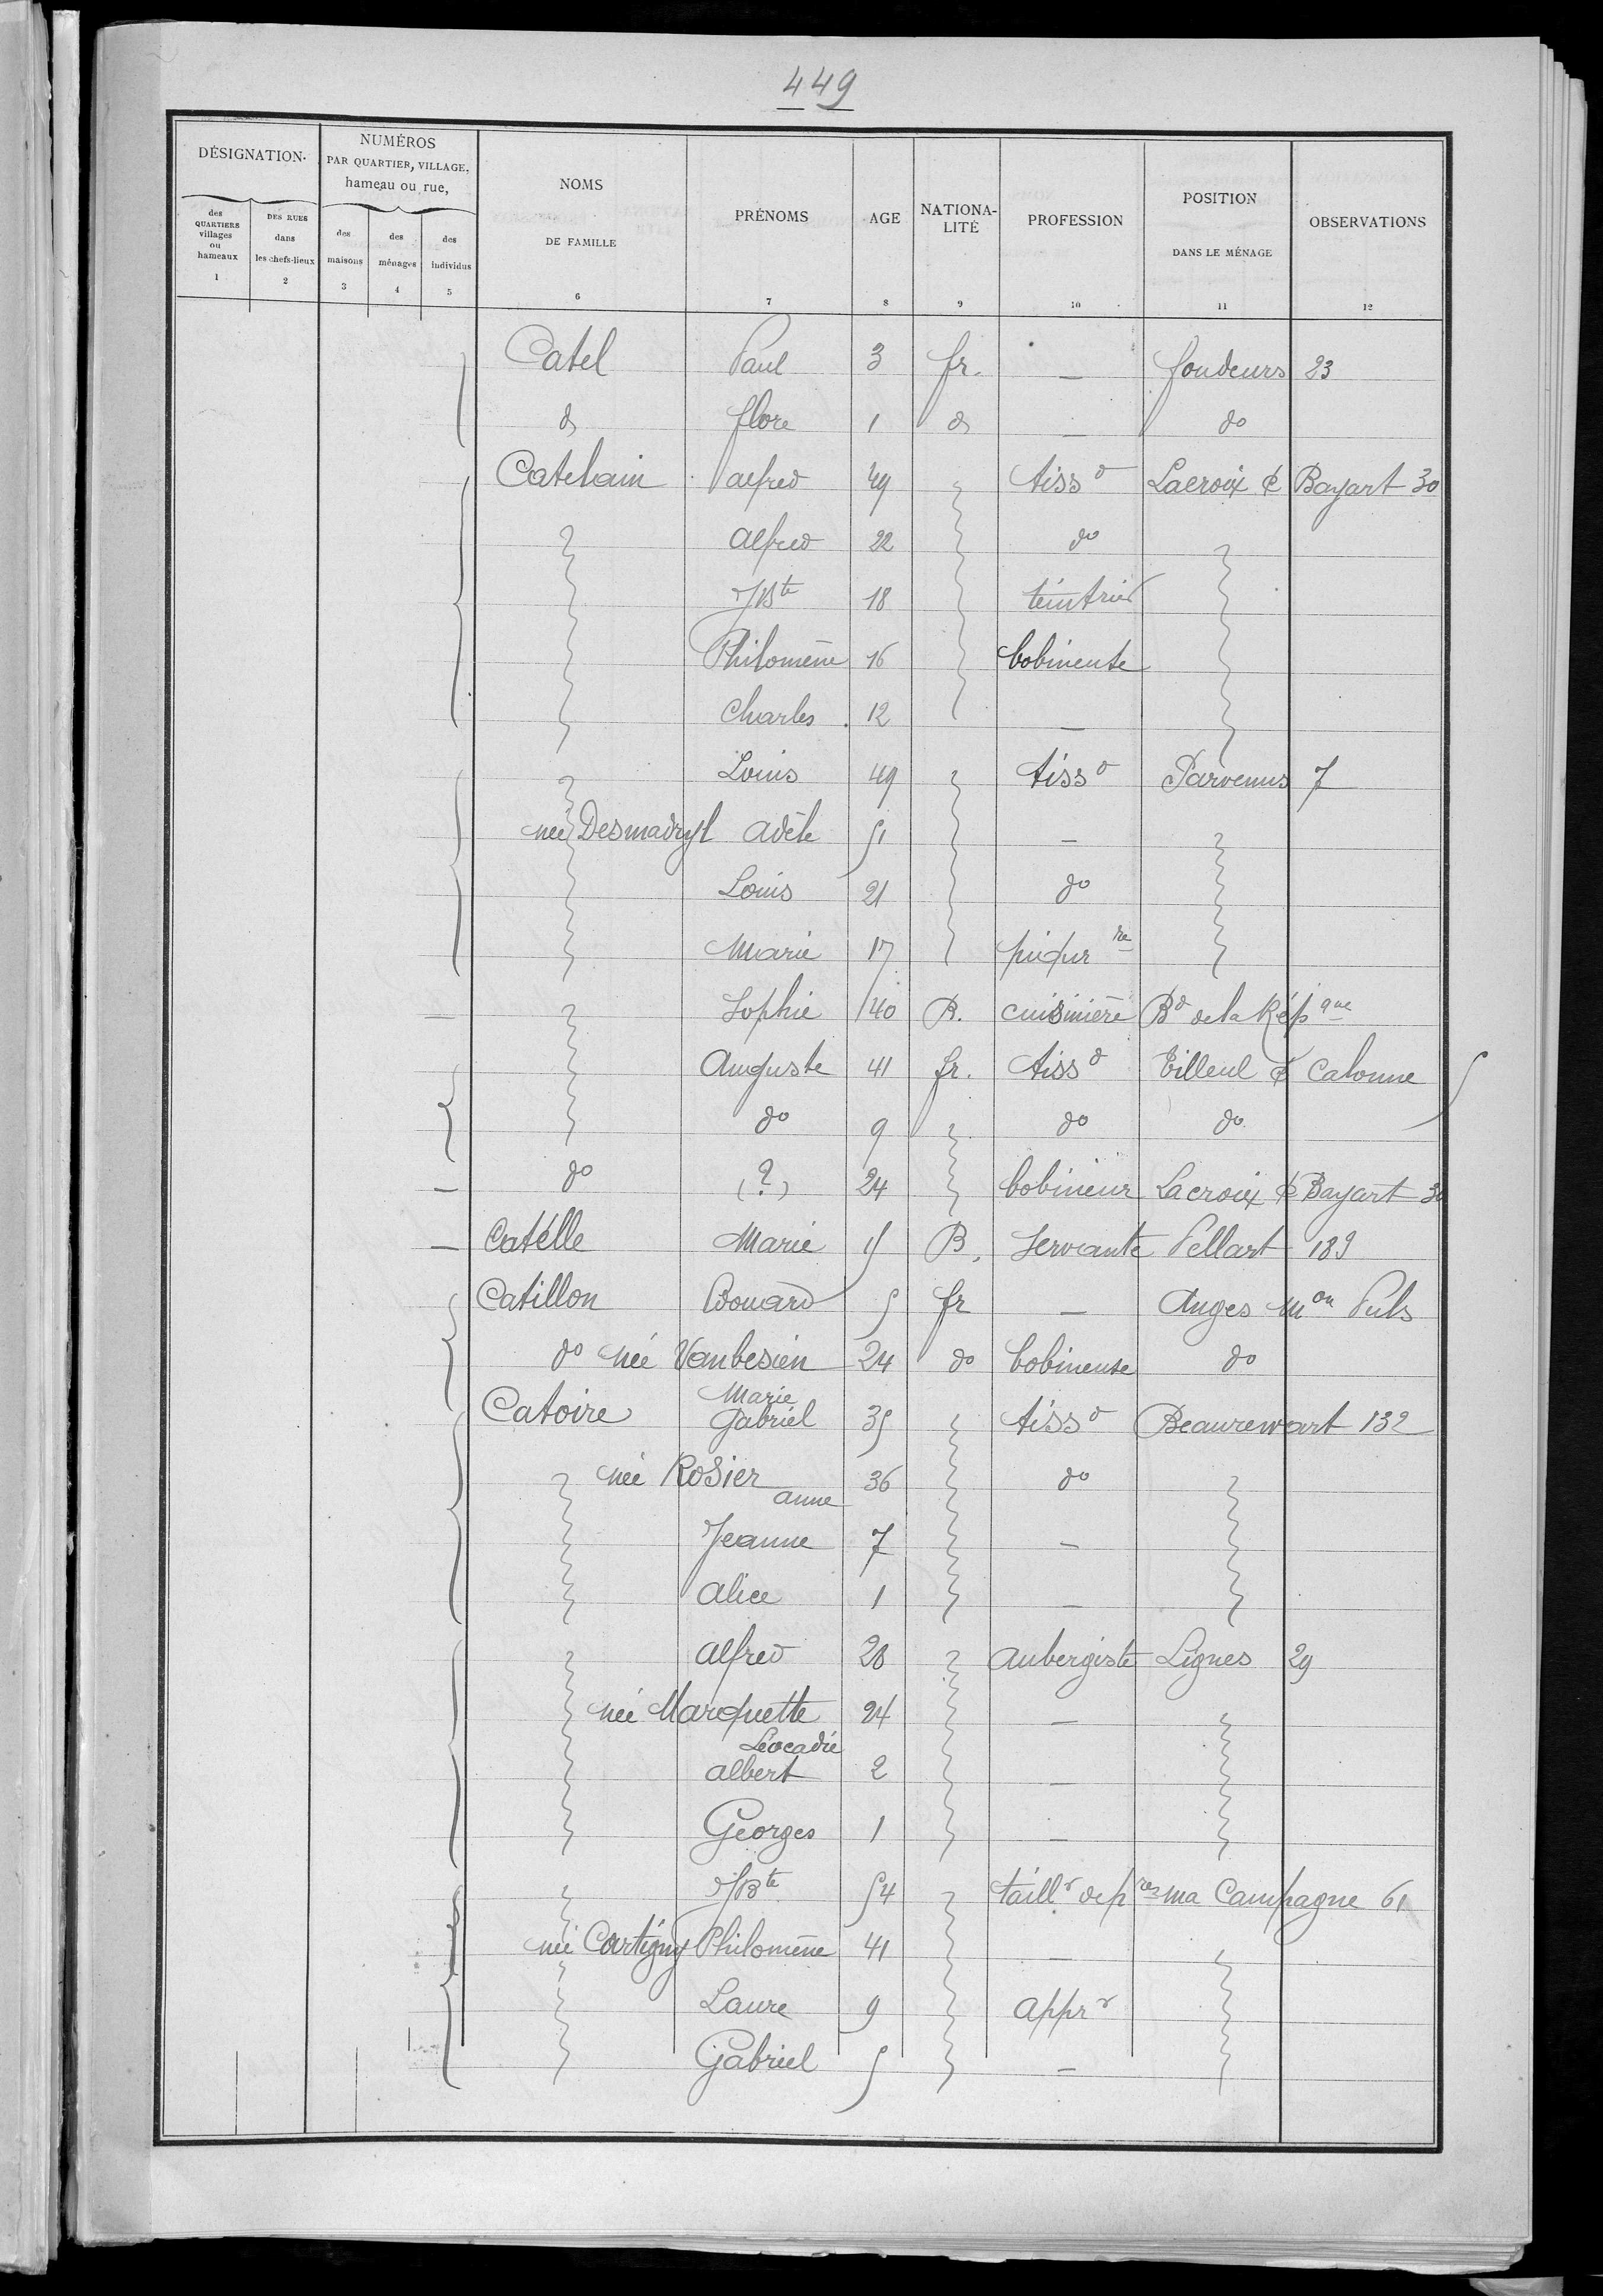 449
DÉSIGNATION. NUMÉROS PAR QUARTIER, VILLAGE, hameau ou rue, NOMS DE FAMILLE PRÉNOMS AGE NATIONA-LITÉ PROFESSION POSITION DANS LE MÉNAGE OBSERVATIONS
des QUARTIERS villages ou hameaux DES RUES dans les chefs-lieux des maisons des ménages des individus
1 2 3 4 5 6 7 8 9 10 11 12
Catel Paul 3 fr. — fondeurs 23
do flore 1 do — do
Catelain alfred 49 tissd Lacroix c Bayart 30
alfred 22 do
JBte 18 teintrier
Philomène 16 bobineuse
Charles 12 —
Louis 49 tissd Parvenus 7
née Desmadryl adèle 51 —
Louis 21 do
Marie 17 piqure
Sophie 40 B. cuisinière Bd de la Répque
Auguste 41 fr. tissd Tilleul c Calonne 5
do 9 do do
do (?) 24 bobineur Lacroix c Bayart 30
Catélle Marie 15 B. servante Pellart 189
Catillon Edouard 5 fr — Anges mon Puls
do née Vanbesien 24 do bobineuse do
Marie
Catoire Gabriel 35 tissd Beaurewart 132
née Rosier 36 do
anne
Jeanne 7 —
alice 1 —
alfred 28 aubergiste Lignes 29
née Marquette 24 —
Léocadie
albert 2 —
Georges 1 —
JBte 54 taillr de pres ma Campagne 61
née Cartigny Philomène 41 —
Laure 9 apprr
Gabriel 5 —